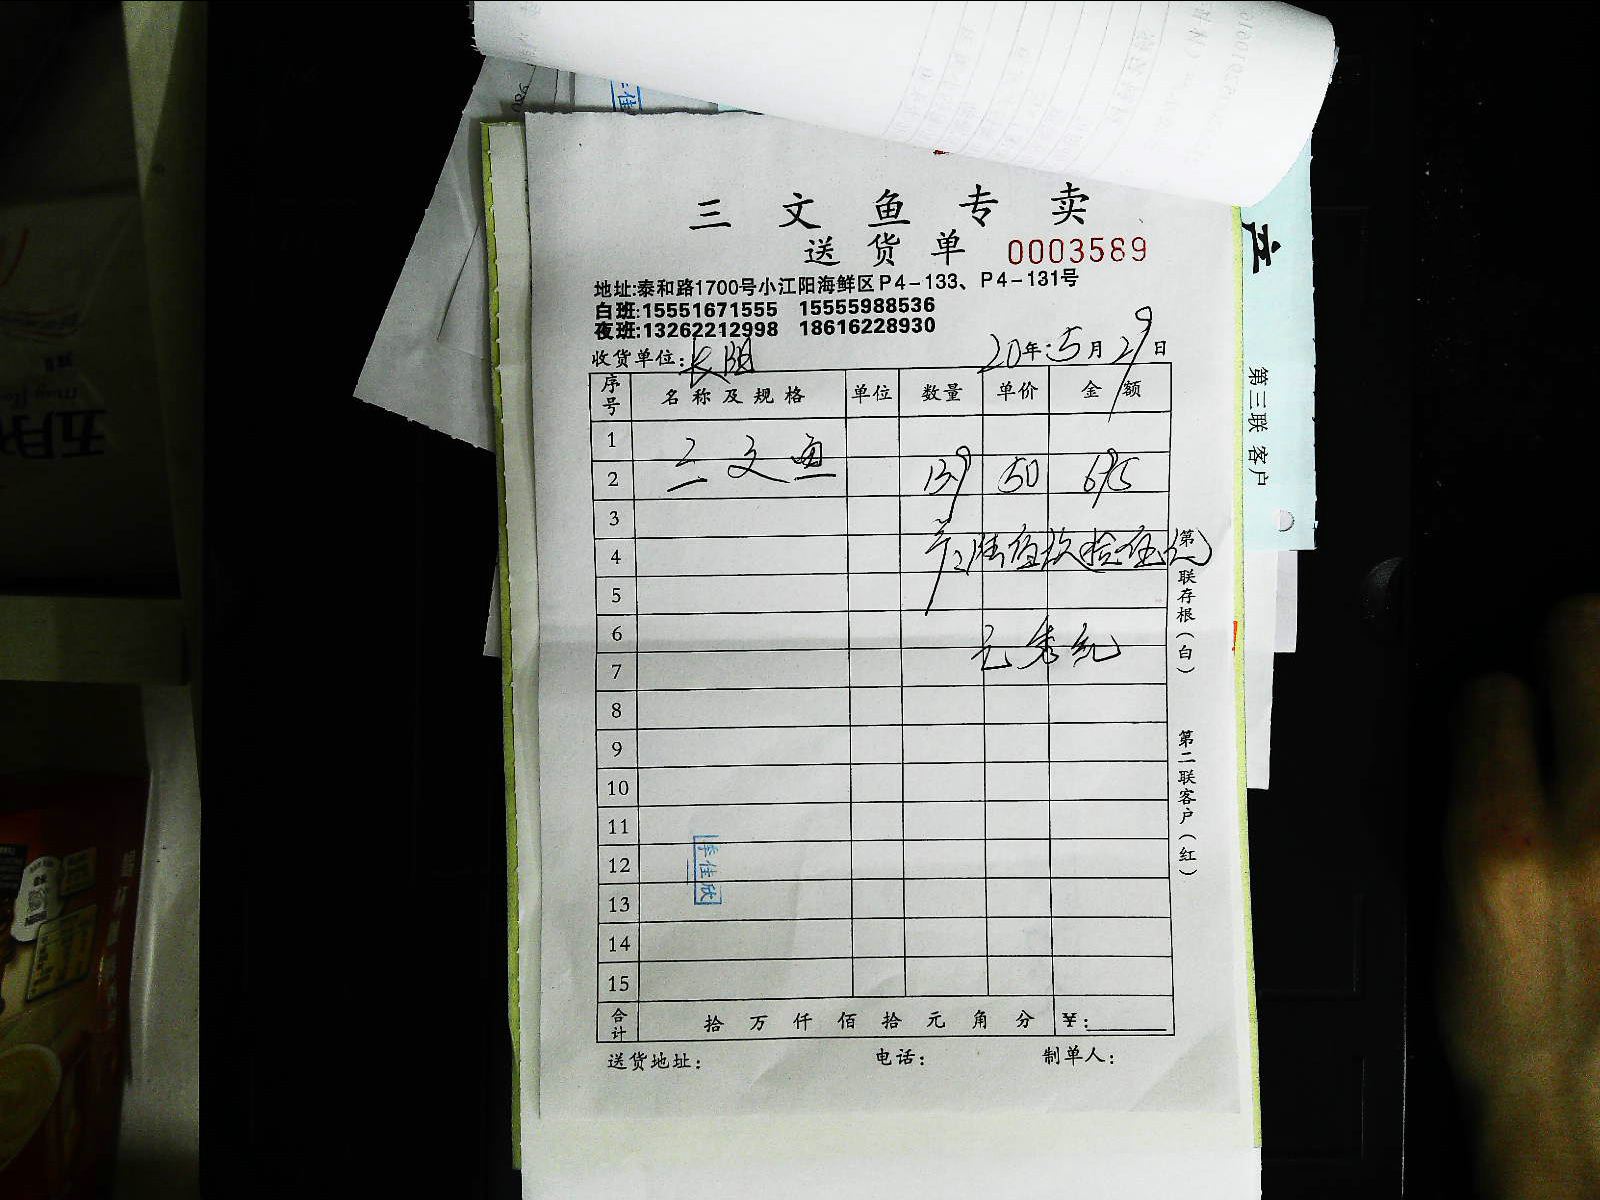 三文鱼专卖
送货单 0003589
地址:泰和路1700号小江阳海鲜区P4-133、P4-131号
白班:15551671555 15555988536
夜班:13262212998 18616228930
收货单位: 长阳 20年5月29日
序号 名称及规格 单位 数量 单价 金额
1
三文鱼 13.9 50 695
2
3
4
陆佰玖拾伍元
5
6
7
8
9
10
11
12
13
14
15
合计 拾 万 仟 佰 拾 元 角 分 ¥:
送货地址: 电话: 制单人:
第一联存根(白)
第二联客户(红)
李佳欣
产
第三联 客户